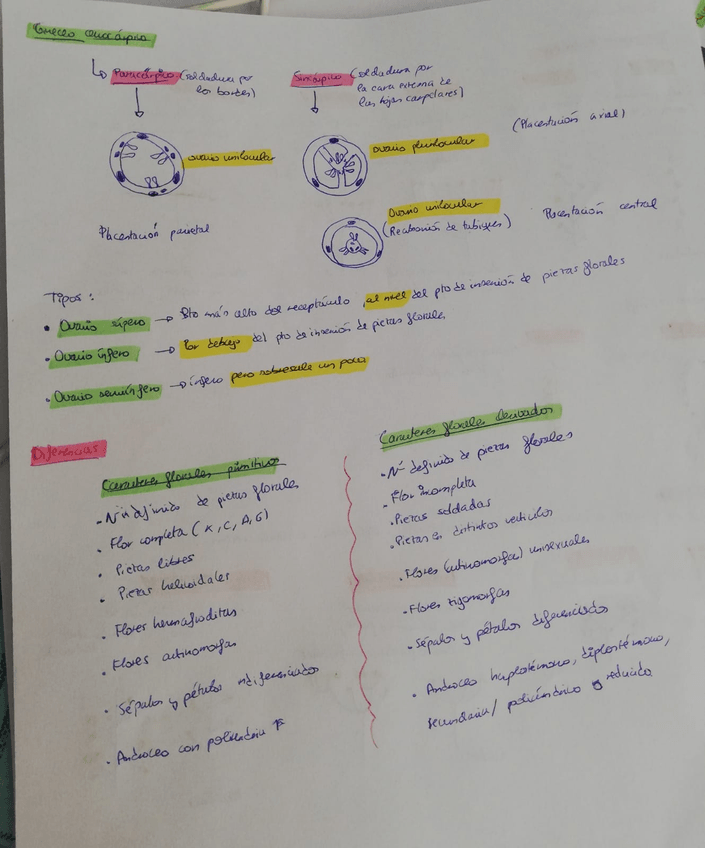 Gineceo cenocárpico
Paracárpico (soldadura por
los bordes)
Sincárpico (soldadura por
la cara externa de
las hojas carpelares)
ovario unilocular
Ovario plurilocular
(Placentación axial)
Placentación parietal
Ovario unilocular
(Reabsorción de tabiques)
Placentación central
Tipos:
• Ovario súpero → Pto más alto del receptáculo, al nivel del pto de inserción de piezas florales
• Ovario ínfero → Por debajo del pto de inserción de piezas florales
• Ovario semiínfero → ínfero pero sobresale un poco
Diferencias
Caracteres florales primitivos
• Nº indefinido de piezas florales
• Flor completa (K, C, A, G)
• Piezas libres
• Piezas helicoidales
• Flores hermafroditas
• Flores actinomorfas
• Sépalos y pétalos indiferenciados
• Androceo con poliandria
Caracteres florales derivados
• Nº definido de piezas florales
• Flor incompleta
• Piezas soldadas
• Piezas en distintos verticilos
• Flores (actinomorfas) unisexuales
• Flores zigomorfas
• Sépalos y pétalos diferenciados
• Androceo haplostémono, diplostémono,
reducido